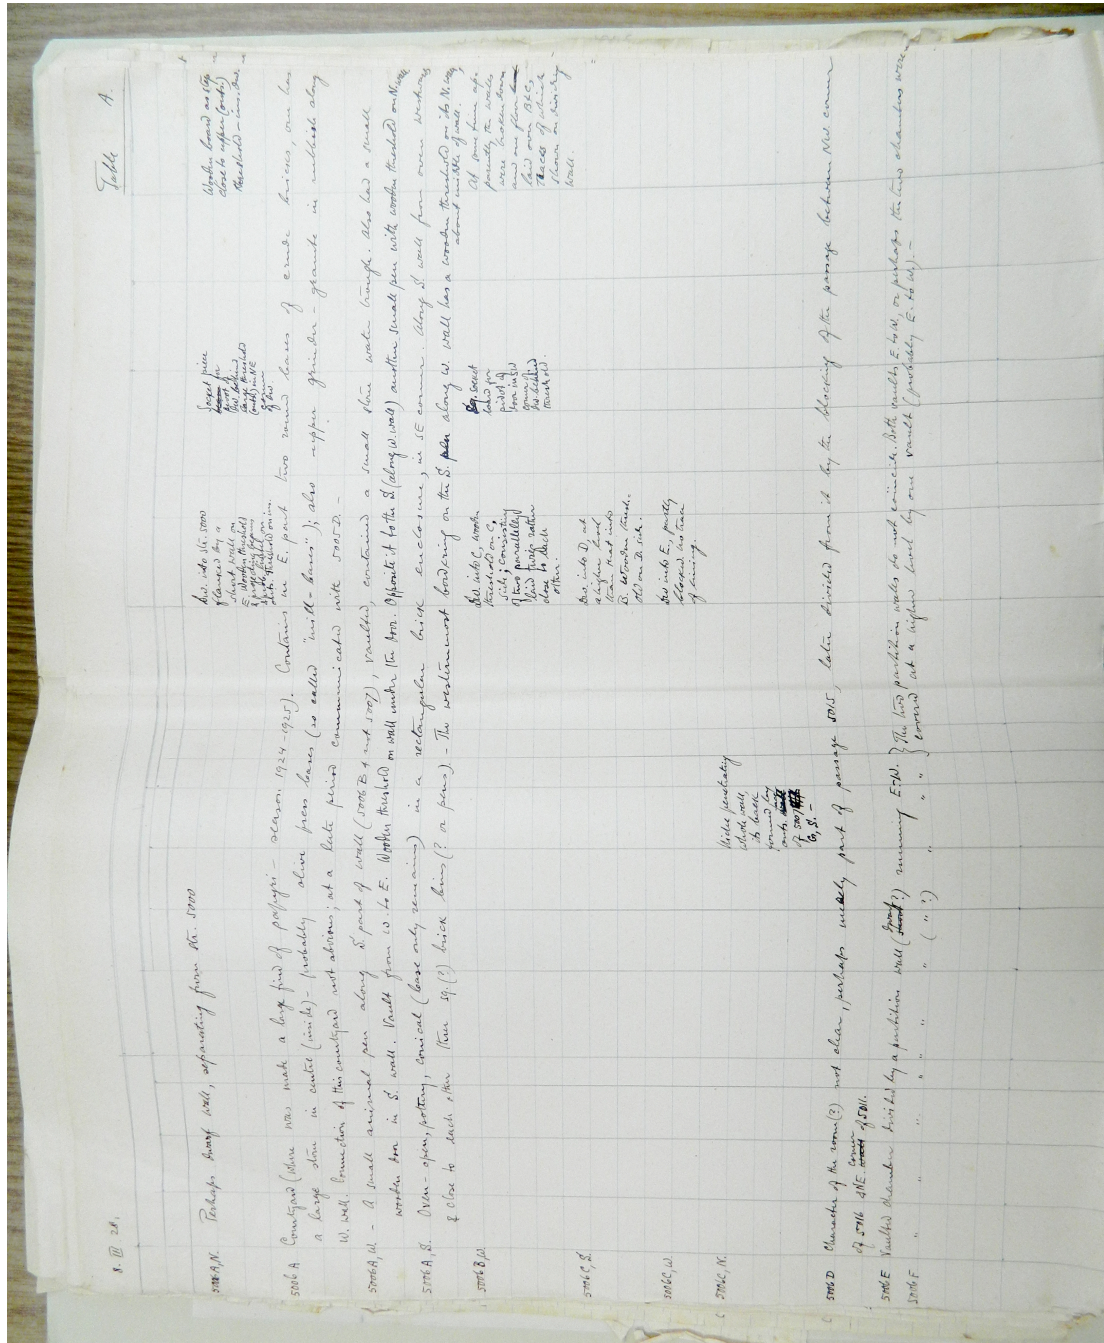 8. III 28.
Table A.
5006A,N. Perhaps dwarf wall, separating from Str. 5000
Dw. into Str. 5000
flanked by a
short wall on
E. Wooden threshold
Socket piece
for
pivot of
Dw. behind
large threshold
(outs) in NE
corner
of Dw.
Wooden board as step
close to upper (outs)
threshold - inside
5006A Courtyard (where was made a large find of papyri - season 1924-1925). Contains in E. part two round bases of crude bricks, one has
a large stone in centre (inside) - probably olive press bases (so called "mill-bases"); also upper grinder - granite in rubbish along
W. wall. Connection of this courtyard not obvious; at a late period communicated with 5005D. -
5006A,W. - A small animal pen along S. part of wall (5006B & not 5007), vaulted, contained a small stone water trough. Also had a small
wooden door in S. wall. Vault from W. to E. Wooden threshold on wall under the door. Opposite it to the S. (along W. wall) another small pen with wooden threshold on N. wall
5006A,S. Oven - open, pottery, conical (base only remains) in a rectangular brick enclosure, in SE corner. Along S. wall from oven westwards
& close to each other three sq.(?) brick bins (? or pens). - The westernmost bordering on the S. pen along W. wall has a wooden threshold on its N. wall,
about middle of wall.
5006B,W.
Dw. into C, wooden
threshold on C,
side; consisting
of two parallelly
laid trees rather
close to each
other.
socket
for
pivot of
door in SW
corner of
Dw. behind
threshold.
At some time ap-
parently the walls
were broken down
and one floor
laid over B & C,
tracks of which
shown on dividing
wall.
5006C,S.
Dw. into D, at
a higher level
than that into
B. Wooden thresh-
old on D. side.
5006C,W.
Dw into E, partly
blocked, no trace
of lining.
5006C,N.
Niche penetrating
whole wall,
its back
formed by
outs.
of 5007
G, S. -
5006D Character of the room(?) not clear, perhaps merely part of passage 5015, later divided from it by the blocking of the passage between NW corner
of 5016 & NE. corner of 5011.
5006E Vaulted chamber divided by a partition wall (dwarf?) running E-W. } The two partition walls do not coincide. Both vaults E to W, or perhaps the two chambers were
5006F " " " " " " (" ?) " " " } covered at a higher level by one vault (probably E. to W). -